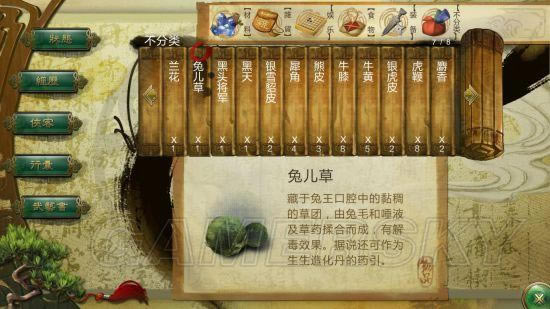 狀態
經歷
俠客
行囊
【材料】
【娱乐】
【食物】
【装备】
【不分类】
不分类
7 / 8
兰花
x1
兔儿草
x1
黑头将军
黑天
x1
银雪貂皮
x2
犀角
x4
熊皮
x3
牛膝
x8
牛黄
x5
银虎皮
虎鞭
x8
麝香
x2
兔儿草
藏于兔王口腔中的黏稠
的草团，由兔毛和唾液
及草药揉合而成，有解
毒效果。据说还可作为
生生造化丹的药引。
物品
GAMERSKY